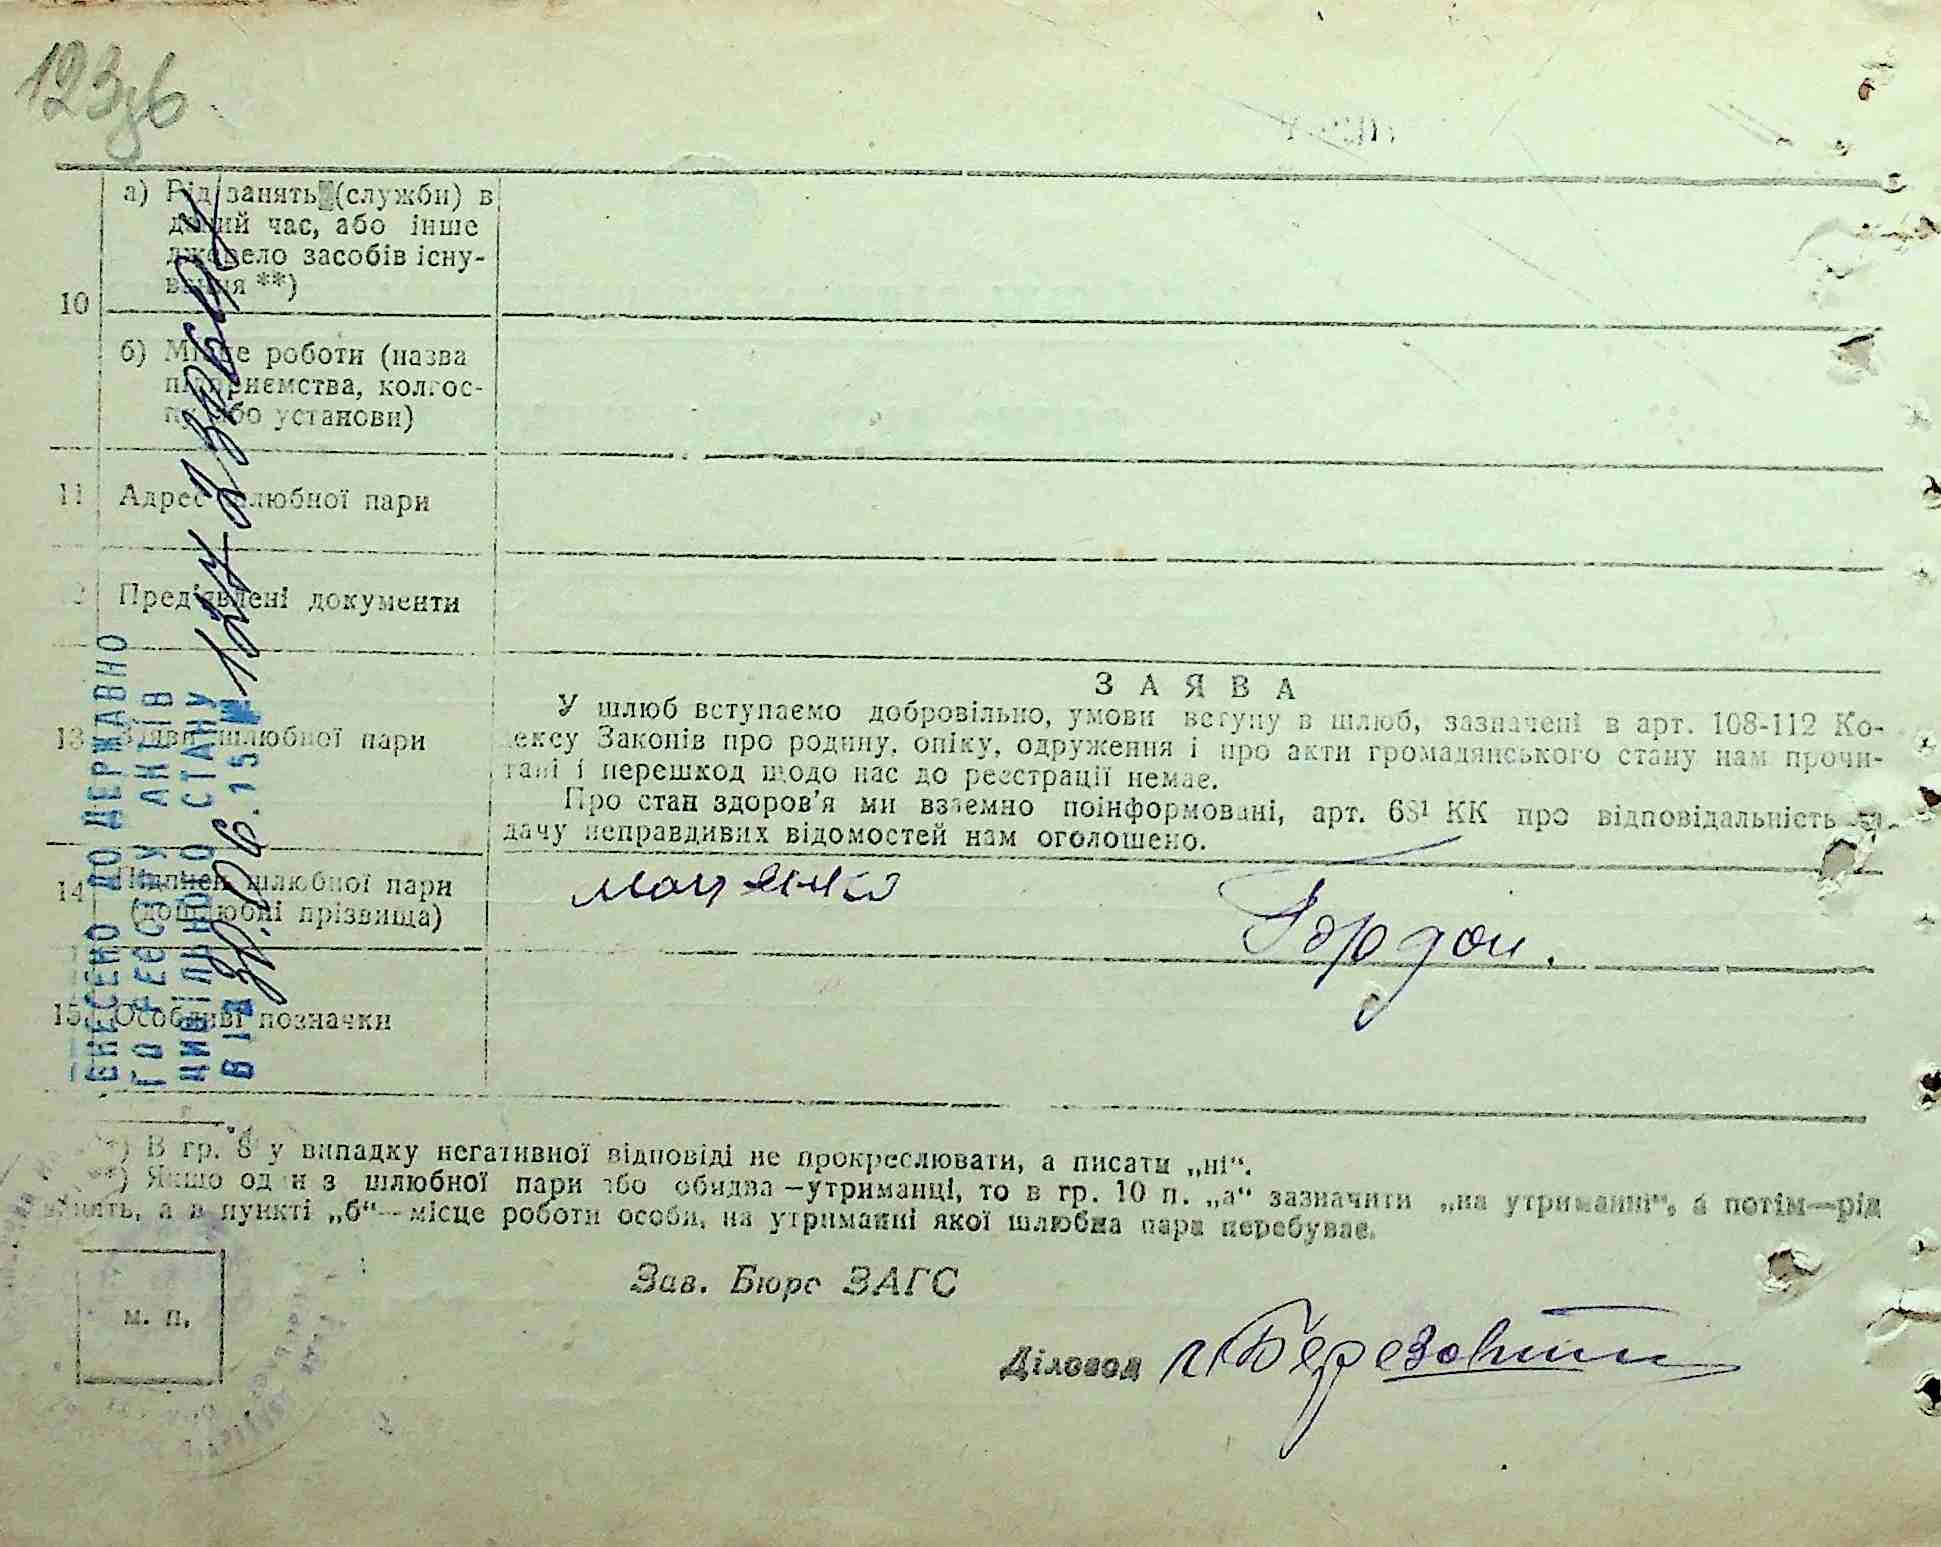 123зв
а) Рід занять (службы) в
даний час, або інше
джерело засобів існу-
вання **)
10
б) Місце роботи (назва
підприємства, колгос-
пу або установи)
11 Адрес шлюбної пари
2 Пред'явлені документи
З А Я В А
13 Заява шлюбної пари
У шлюб вступаємо добровільно, умови вступу в шлюб, зазначені в арт. 108-112 Ко-
дексу Законів про родину, опіку, одруження і про акти громадянського стану нам прочи-
тані і перешкод щодо нас до реєстрації немає.
Про стан здоров'я ми взаємно поінформовані, арт. 68¹ КК про відповідальність за
дачу неправдивих відомостей нам оголошено.
14 Підписи шлюбної пари
(дошлюбні прізвища)
Моценко
Гордон.
15. Особливі позначки
ВНЕСЕНО ДО ДЕРЖАВНО
ГО РЕЄСТРУ АКТІВ
ЦИВІЛЬНОГО СТАНУ
ВІД 30.06.15 №
*) В гр. 8 у випадку негативної відповіді не прокреслювати, а писати „ні“.
*) Якщо один з шлюбної пари або обидва—утриманці, то в гр. 10 п. „а“ зазначити „на утриманні“, а потім—рід
занять, а в пункті „б“—місце роботи особи, на утриманні якої шлюбна пара перебуває.
Зав. Бюро ЗАГС
м. п.
Діловод Березовт